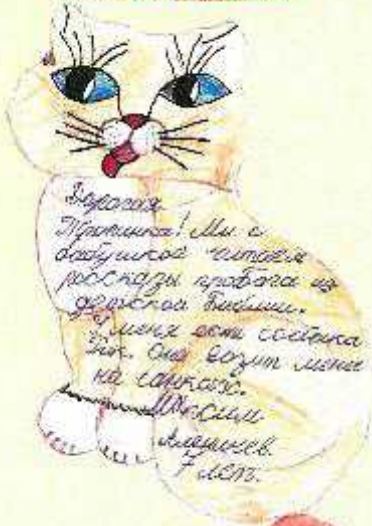 Дорогая
Тропинка! Мы с
бабушкой читаем
рассказы про Бога из
детской Библии.
У меня есть собака
Она возит меня
на санках.
Максим
7 лет.